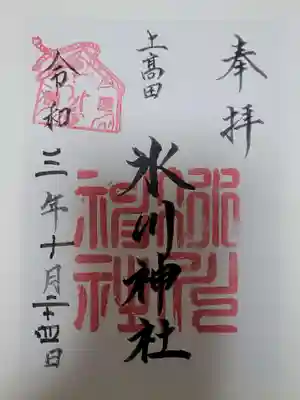 奉拝
上高田
氷川神社
令和三年十月二十四日
氷川
神社